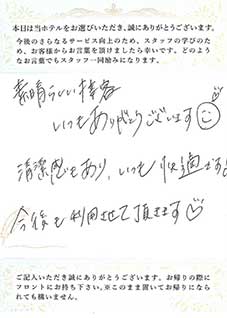 本日は当ホテルをお選びいただき、誠にありがとうございます。
今後のさらなるサービス向上のため、スタッフの学びのため、お客様からお言葉を頂けましたら幸いです。どのようなお言葉でもスタッフ一同励みになります。
素晴らしい接客
いつもありがとうございます
清潔感もあり、いつも快適です
今後も利用させて頂きます♡
ご記入いただき誠にありがとうございます。お帰りの際に
フロントにお持ち下さい。※このまま置いてお帰りになら
れても構いません。